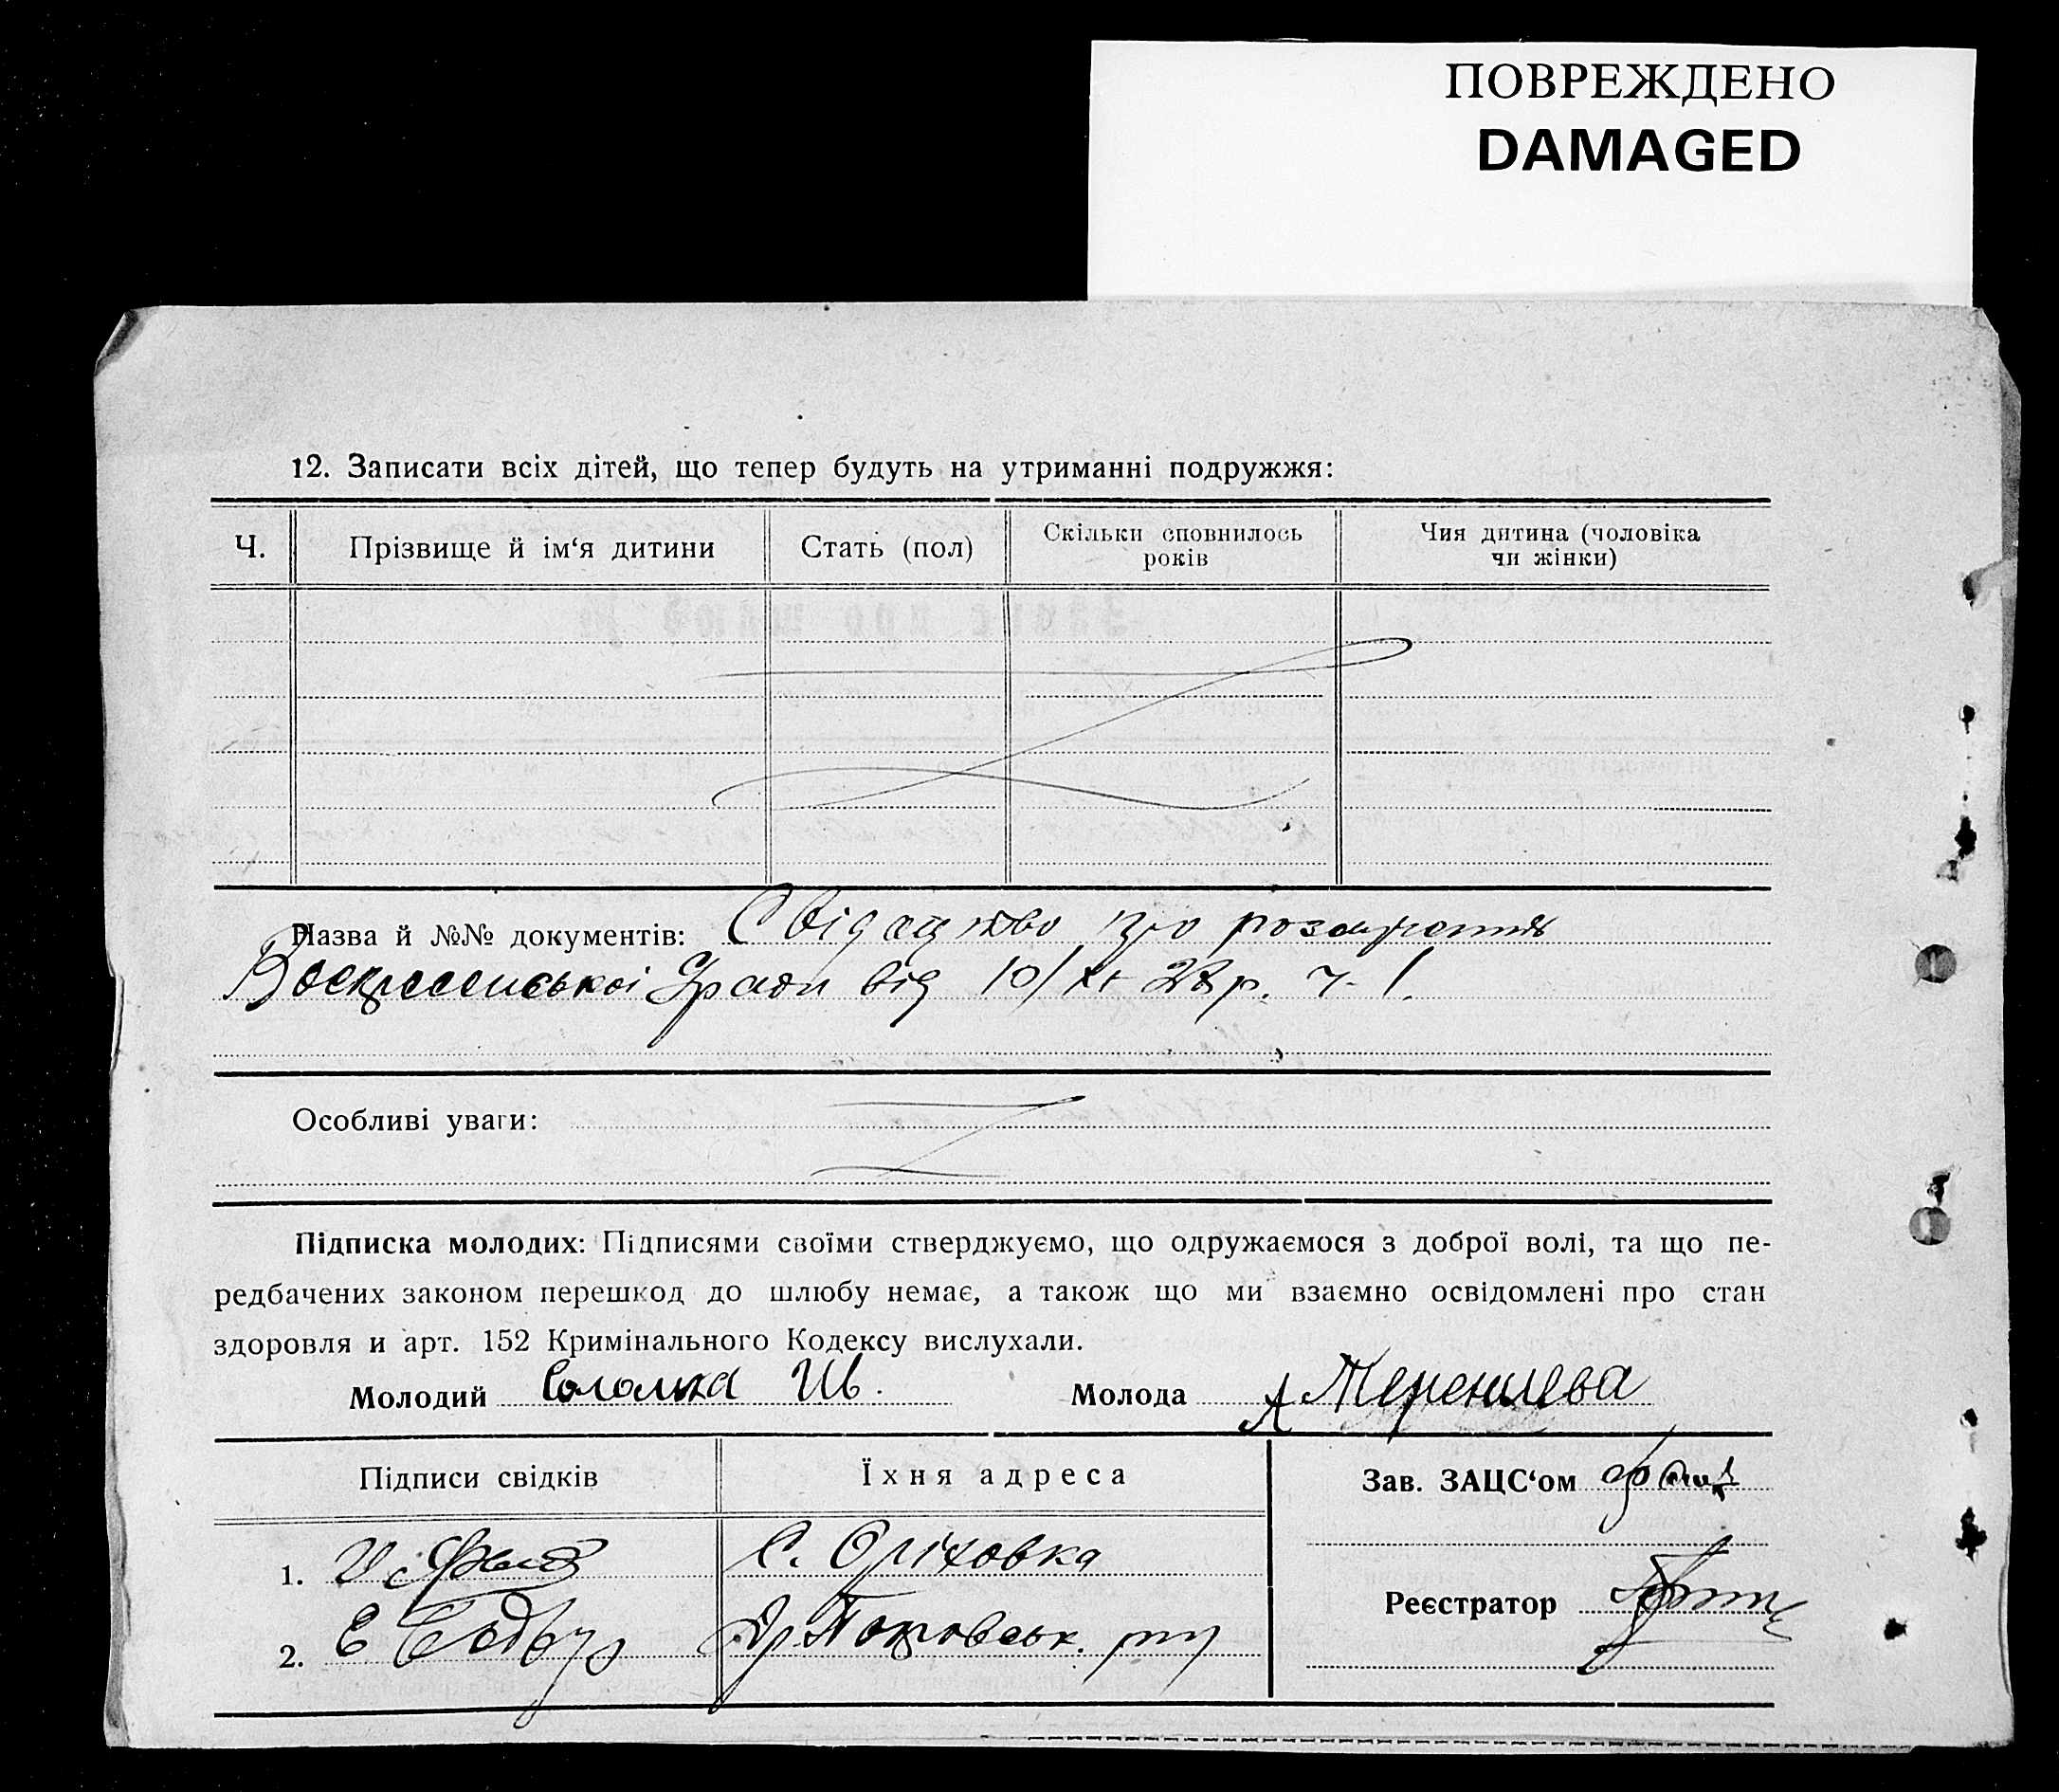 ПОВРЕЖДЕНО
DAMAGED
12. Записати всіх дітей, що тепер будуть на утриманні подружжя:
Ч. Прізвище й ім‘я дитини Стать (пол) Скільки сповнилось років Чия дитина (чоловіка чи жінки)
Назва й №№ документів: Свідацтво про розлучення
Воскресенської Ӱради від 10/XI 28 р. ч. 1.
Особливі уваги:
Підписка молодих: Підписями своїми стверджуємо, що одружаємося з доброї волі, та що пе-
редбачених законом перешкод до шлюбу немає, а також що ми взаємно освідомлені про стан
здоровля и арт. 152 Кримінального Кодексу вислухали.
Молодий Соломка Ив. Молода А Терентєва
Підписи свідків Їхня адреса Зав. ЗАЦС‘ом
1. С. Оріховка
Реєстратор
2.